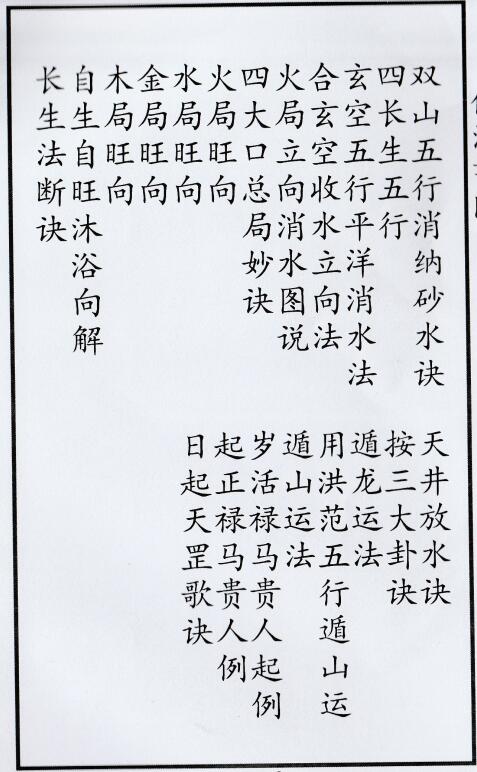 双山五行消纳砂水诀
四长生五行
玄空五行平洋消水法
合玄空收水立向法
火局立向消水图说
四大口总局妙诀
火局旺向
水局旺向
金局旺向
木局旺向
自生自旺沐浴向解
长生法断诀
天井放水诀
按三大卦诀
遁龙运法
用洪范五行遁山运
遁山运法
岁活禄马贵人起例
起正禄马贵人例
日起天罡歌诀